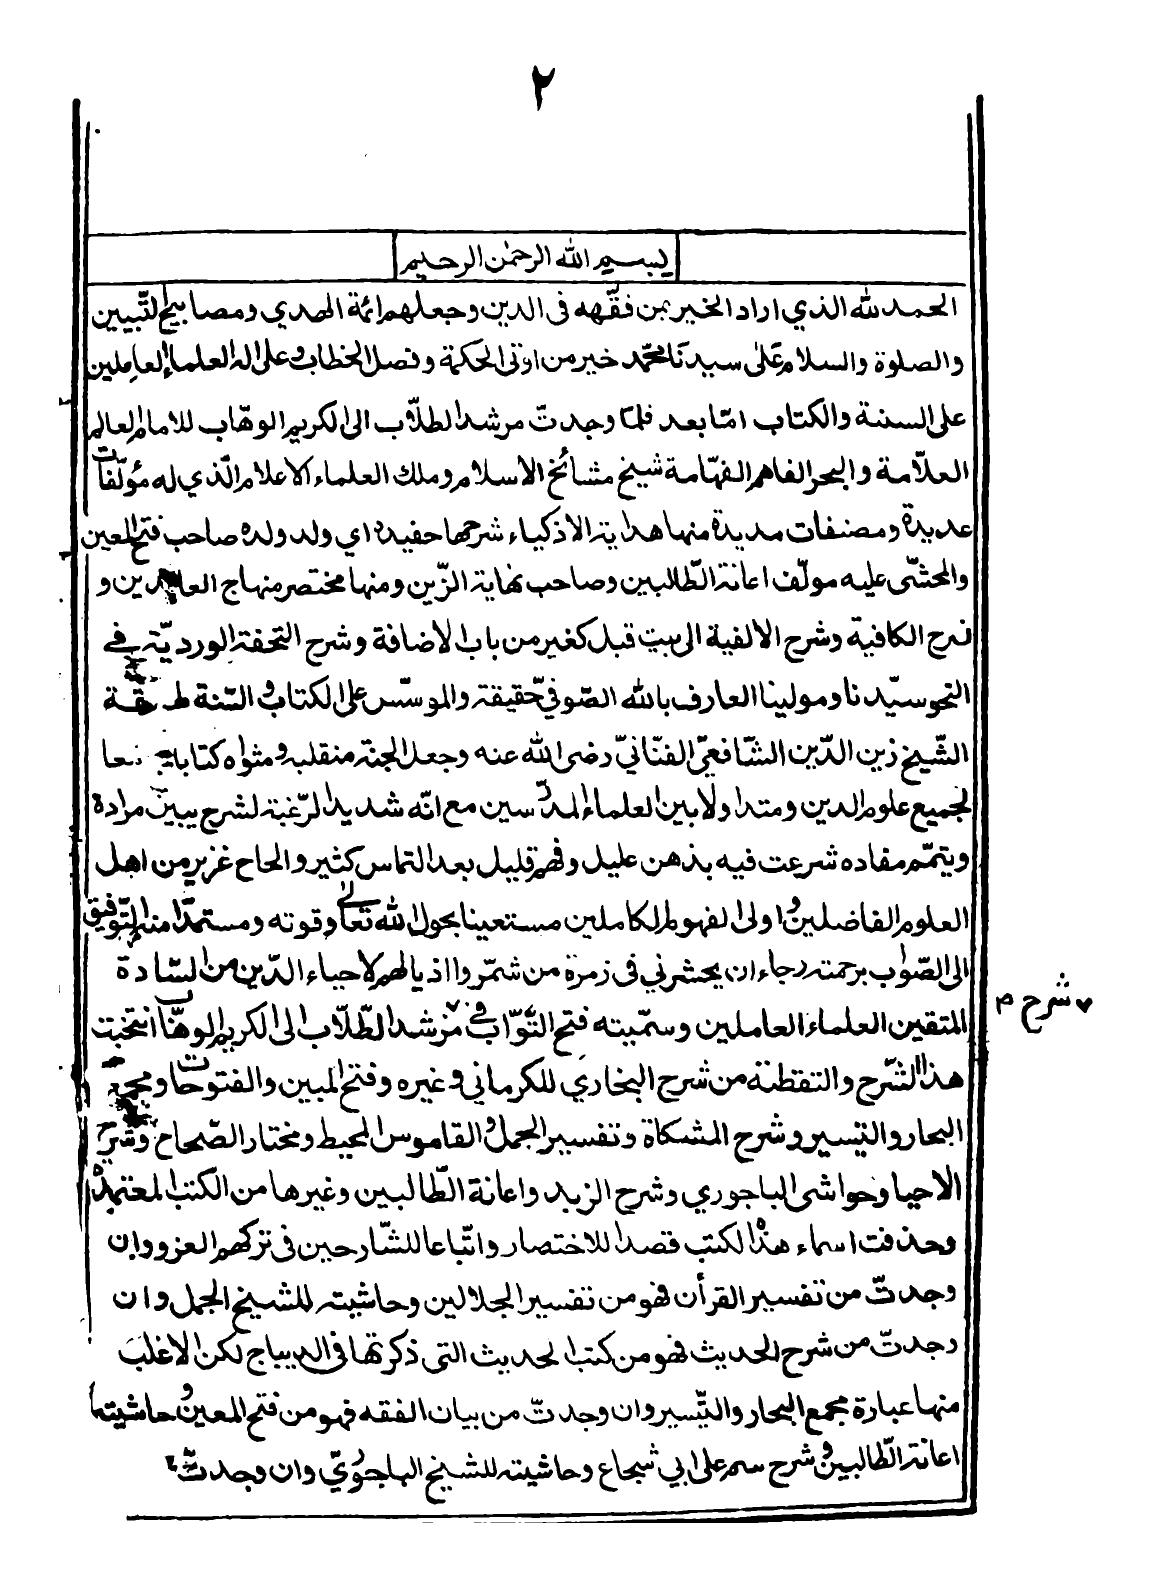 ٢
بسم الله الرحمٰن الرحيم
الحمد لله الذي اراد الخير بمن فقّهه فى الدين وجعلهم ائمة الهدي ومصابيح لتّبيين
والصلوة والسلام على سيدنا محمّد خير من اوتى الحكمة وفصل الخطاب وعلى اله العلماء العاملين
على السنة والكتاب امّا بعد فلمّا وجدتّ مرشد الطلّاب الى الكريم الوهّاب للامام العالم
العلّامة والبحر الفاهم الفهّامة شيخ مشائخ الاسلام وملك العلماء الاعلام الّذي له مؤلّفات
عديدة ومصنفات مديدة منها هداية الاذكياء شرحها حفيده اي ولد ولده صاحب فتح المعين
والمحشّى عليه مولّف اعانة الطّالبين وصاحب نهاية الزّين ومنها مختصر منهاج العابدين و
شرح الكافية وشرح الالفية الى بيت قبل كغير من باب الاضافة وشرح التحفة الورديّة في
النحو سيّدنا ومولينا العارف بالله الصّوفيّ حقيقة والموسّس على الكتاب والسّنة طريقة
الشّيخ زين الدّين الشّافعيّ الفنّانيّ رضى الله عنه وجعل الجنة منقلبه ومثواه كتابا جامعا
لجميع علوم الدين ومتداولا بين العلماء المدرّسين مع انّه شديد الرّغبة لشرح يبين مراده
ويتمّم مفاده شرعت فيه بذهن عليل وفهم قليل بعد التماس كثير والحاح غزير من اهل
العلوم الفاضلين واولى الفهوم الكاملين مستعينا بحول الله تعالى وقوته ومستمدّا منه التّوفيق
الى الصّواب برحمته رجاء ان يحشرني فى زمرة من شمّروا اذيالهم لاحياء الدّين من السّادة
المتقين العلماء العاملين وسمّيته فتح التّوّاب فى مرشد الطّلّاب الى الكريم الوهّاب انتخبت
شرح م
هذا الشّرح والتقطته من شرح البخاري للكرماني وغيره وفتح المبين والفتوحات ومجمع
البحار والتيسير وشرح المشكاة وتفسير الجمل والقاموس المحيط ومختار الصّحاح وشرح
الاحيا وحواشى الباجوري وشرح الزبد واعانة الطّالبين وغيرها من الكتب المعتمدة
وحذفت اسماء هذه الكتب قصدا للاختصار واتّباعا للشّارحين فى تركهم العزو وان
وجدتّ من تفسير القرأن فهو من تفسير الجلالين وحاشيته للشيخ الجمل وان
وجدتّ من شرح الحديث فهو من كتب الحديث التى ذكرتها فى الديباج لكن الاغلب
منها عبارة مجمع البحار والتّيسير وان وجدتّ من بيان الفقه فهو من فتح المعين وحاشيتها
اعانة الطّالبين وشرح سم على ابي شجاع وحاشيته للشيخ الباجوريّ وان وجدتّ